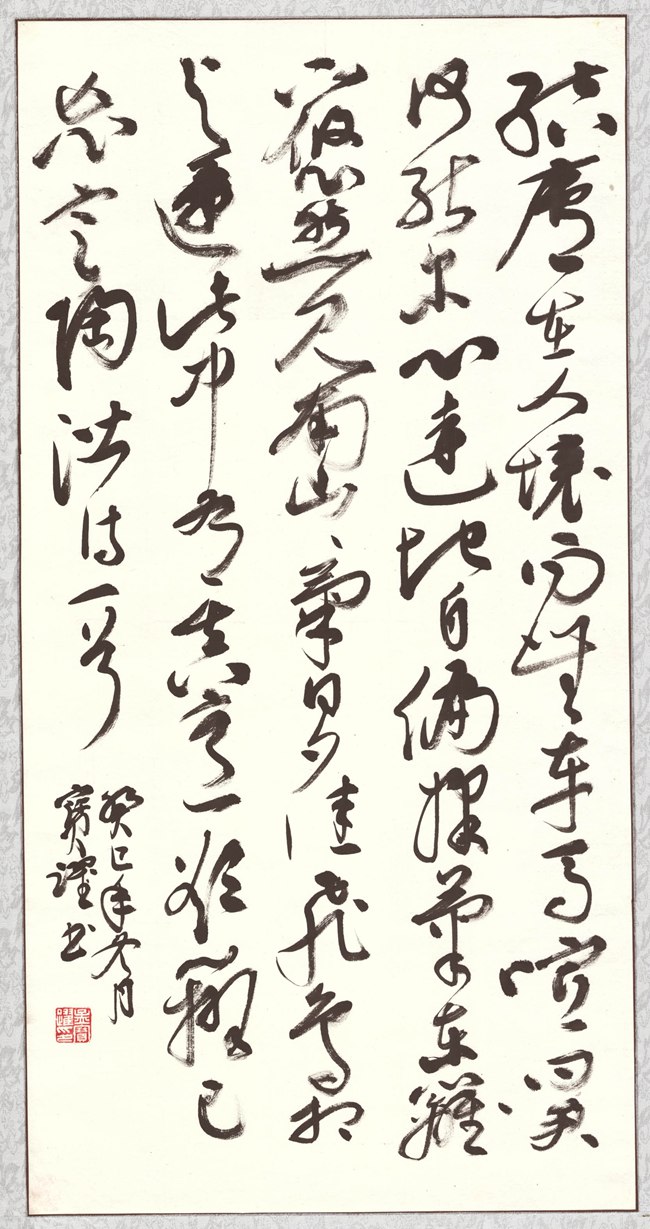 結廬在人境而無車馬喧問君
何能尔心遠地自偏採菊東籬
下悠然見南山、氣日夕佳飛鳥相
与還此中有真意欲辨已
忘言陶潛詩一首
癸巳年冬月
寶躍書